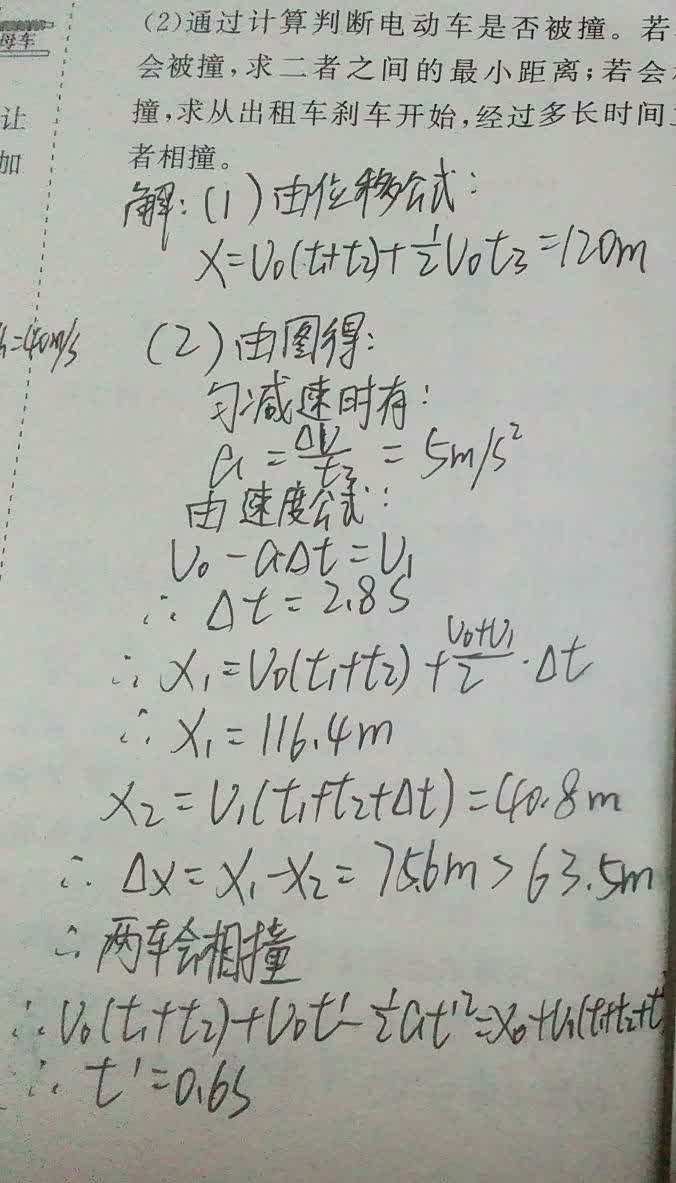 (2)通过计算判断电动车是否被撞。若
母车
会被撞,求二者之间的最小距离;若会
让
撞,求从出租车刹车开始,经过多长时间
加
者相撞。
解:(1)由位移公式:
X=V₀(t₁+t₂)+½V₀t₃=120m
=40m/s
(2)由图得:
匀减速时有:
a=Δv/t₃=5m/s²
由速度公式:
V₀-a·Δt=V₁
∴Δt=2.8S
∴X₁=V₀(t₁+t₂)+(V₀+V₁)/2·Δt
∴X₁=116.4m
X₂=V₁(t₁+t₂+Δt)=40.8m
∴ΔX=X₁-X₂=75.6m>63.5m
∴两车会相撞
∴V₀(t₁+t₂)+V₀t'-½at'²=X₀+V₁(t₁+t₂+t'
∴t'=0.6S